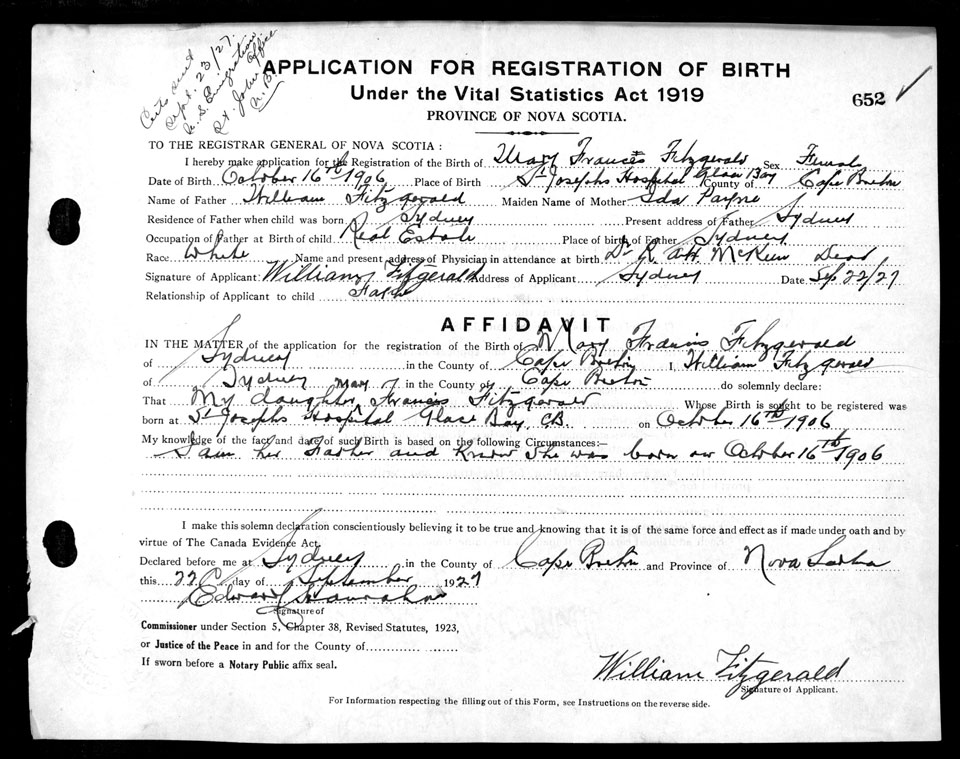 Certs sent
Sept. 23/27.
U.S. Emigration
Office
St. John
N.B.
APPLICATION FOR REGISTRATION OF BIRTH
Under the Vital Statistics Act 1919
652
PROVINCE OF NOVA SCOTIA.
TO THE REGISTRAR GENERAL OF NOVA SCOTIA :
I hereby make application for the Registration of the Birth of Mary Frances Fitzgerald Sex Female
Date of Birth October 16th 1906 Place of Birth St Josephs Hospital Glace Bay County of Cape Breton
Name of Father William Fitzgerald Maiden Name of Mother Ida Payne
Residence of Father when child was born Sydney Present address of Father Sydney
Occupation of Father at Birth of child Real Estate Place of birth of Father Sydney
Race White Name and present address of Physician in attendance at birth Dr R. McKeen Dead
Signature of Applicant William Fitzgerald Address of Applicant Sydney Date Sep 22/27
Relationship of Applicant to child Father
AFFIDAVIT
IN THE MATTER of the application for the registration of the Birth of Mary Francis Fitzgerald
of Sydney in the County of Cape Breton I, William Fitzgerald
of Sydney in the County of Cape Breton do solemnly declare:
That My daughter Mary Francis Fitzgerald Whose Birth is sought to be registered was
born at St Josephs Hospital Glace Bay, C.B. on October 16th 1906
My knowledge of the fact and date of such Birth is based on the following Circumstances:—
I am her Father and know she was born on October 16th 1906
I make this solemn declaration conscientiously believing it to be true and knowing that it is of the same force and effect as if made under oath and by
virtue of The Canada Evidence Act.
Declared before me at Sydney in the County of Cape Breton and Province of Nova Scotia
this 22 day of September 1927
Edward
Signature of
Commissioner under Section 5, Chapter 38, Revised Statutes, 1923,
or Justice of the Peace in and for the County of
If sworn before a Notary Public affix seal.
William Fitzgerald
Signature of Applicant.
For Information respecting the filling out of this Form, see Instructions on the reverse side.